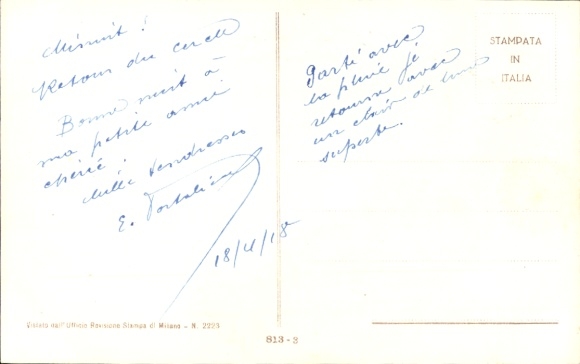 Minuit !
Retour du cercle
Bonne nuit à
ma petite amie
chérie !
Mille tendresses
E.
18/4/18
Parti avec
la pluie je
retourne avec
un clair de lune
superbe.
STAMPATA
IN
ITALIA
Vistato nell'Ufficio Revisione Stampa di Milano - N. 2223
813 - 3